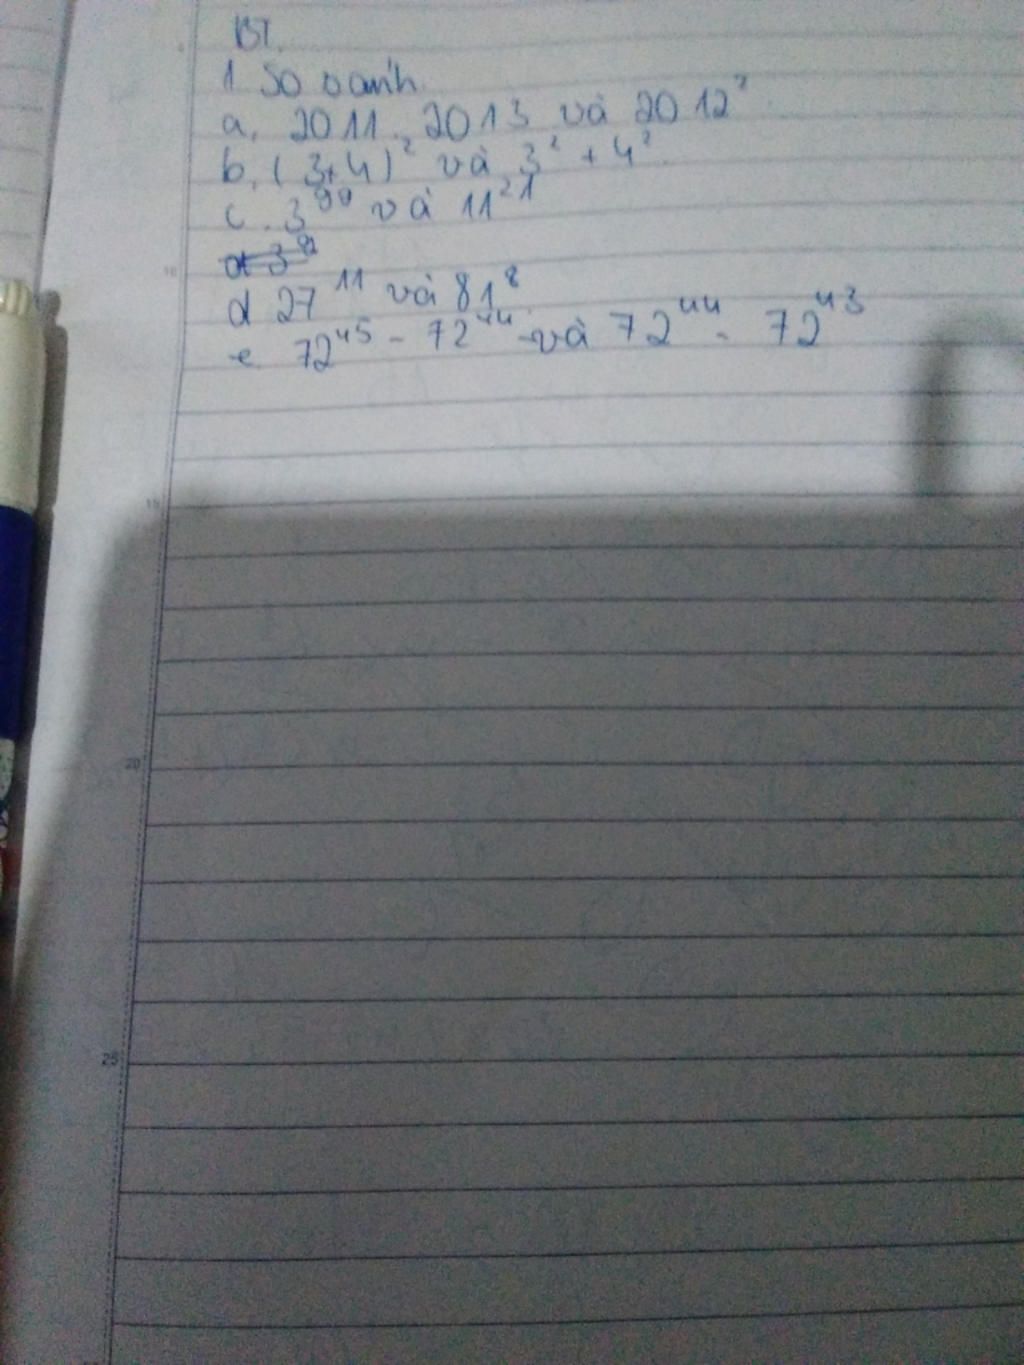 BT.
1. So oanh
a. 2011 . 2013 và 2012²
b. (3+4)² và 3² + 4²
c. 3⁹⁹ và 11²¹
d 27¹¹ và 81⁸
e 72⁴⁵ - 72⁴⁴ và 72⁴⁴ - 72⁴³
10
15
20
25